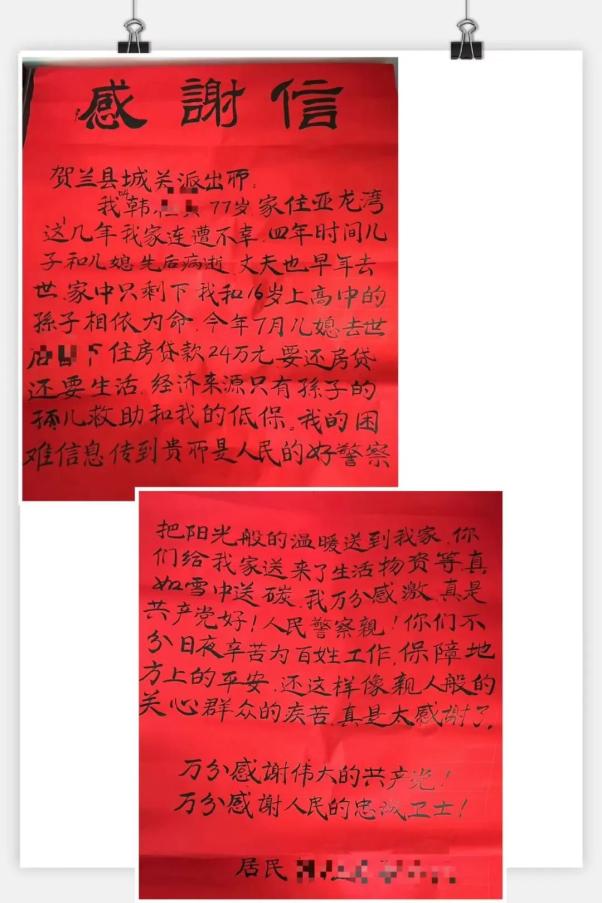 感謝信
贺兰县城关派出所
我韩 77岁.家住亚龙湾
这几年我家连遭不幸.四年时间儿
子和儿媳先后病逝.丈夫也早年去
世.家中只剩下我和16岁上高中的
孫子相依为命.今年7月儿媳去世
下住房贷款24万元.要还房贷
还要生活.经济来源只有孫子的
孤儿救助和我的低保。我的困
难信息传到贵所是人民的好警察
把阳光般的温暖送到我家.你
们给我家送来了生活物资等真
如雪中送碳.我万分感激.真是
共产党好！人民警察親！你们不
分日夜辛苦为百姓工作.保障地
方上的平安.还这样像親人般的
关心群众的疾苦.真是太感谢了.
万分感谢伟大的共产党！
万分感谢人民的忠诚卫士！
居民